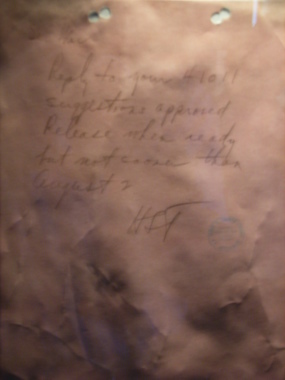 Reply to your 41011
suggestions approved
Release when ready
but not sooner than
August 2
HST